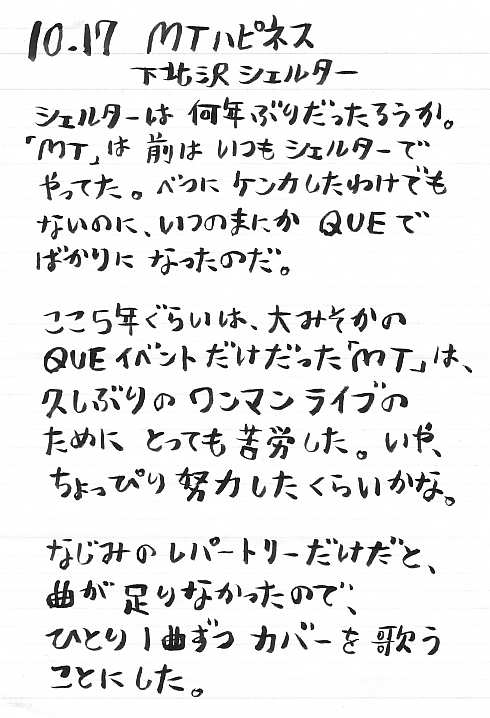 10.17 MTハピネス
下北沢シェルター
シェルターは 何年ぶりだったろうか。
「MT」は 前は いつも シェルターで
やってた。べつに ケンカしたわけでも
ないのに、いつのまにか QUEで
ばかりに なったのだ。
ここ5年ぐらいは、大みそかの
QUEイベントだけだった「MT」は、
久しぶりの ワンマンライブの
ために とっても 苦労した。いや、
ちょっぴり 努力したくらいかな。
なじみの レパートリーだけだと、
曲が 足りなかったので、
ひとり 1曲ずつ カバーを 歌う
ことにした。